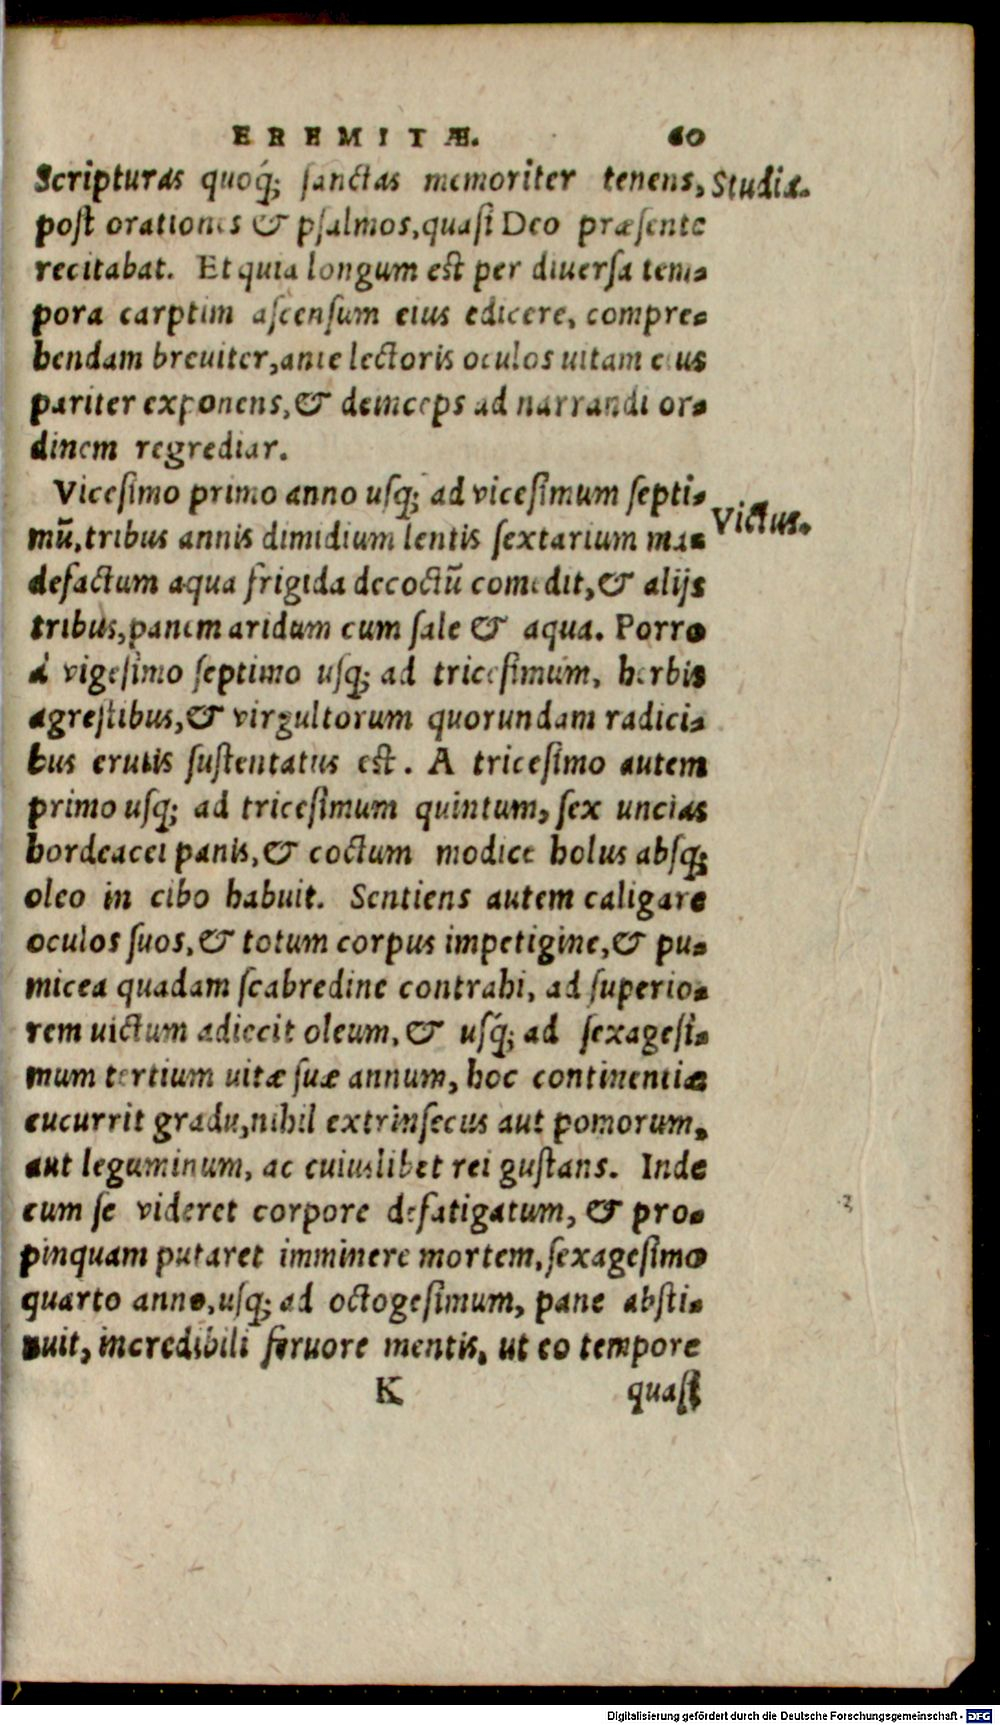 EREMITÆ. 60
Scripturas quoq́; sanctas memoriter tenens, Studia.
post orationes & psalmos, quasi Deo præsente
recitabat. Et quia longum est per diuersa tem-
pora carptim ascensum eius edicere, compre-
hendam breuiter, ante lectoris oculos uitam eius
pariter exponens, & deinceps ad narrandi or-
dinem regrediar.
Vicesimo primo anno usq; ad vicesimum septi-
mū, tribus annis dimidium lentis sextarium ma- Victus.
defactum aqua frigida decoctū comedit, & alijs
tribus, panem aridum cum sale & aqua. Porro
à vigesimo septimo usq; ad tricesimum, herbis
agrestibus, & virgultorum quorundam radici-
bus erutis sustentatus est. A tricesimo autem
primo usq; ad tricesimum quintum, sex uncias
hordeacei panis, & coctum modice holus absq;
oleo in cibo habuit. Sentiens autem caligare
oculos suos, & totum corpus impetigine, & pu-
micea quadam scabredine contrahi, ad superio-
rem uictum adiecit oleum, & usq́; ad sexagesi-
mum tertium uitæ suæ annum, hoc continentiæ
cucurrit gradu, nihil extrinsecus aut pomorum,
aut leguminum, ac cuiuslibet rei gustans. Inde
cum se videret corpore defatigatum, & pro-
pinquam putaret imminere mortem, sexagesimo
quarto anno, usq; ad octogesimum, pane absti-
nuit, incredibili feruore mentis, ut eo tempore
K quasi
Digitalisierung gefördert durch die Deutsche Forschungsgemeinschaft - DFG